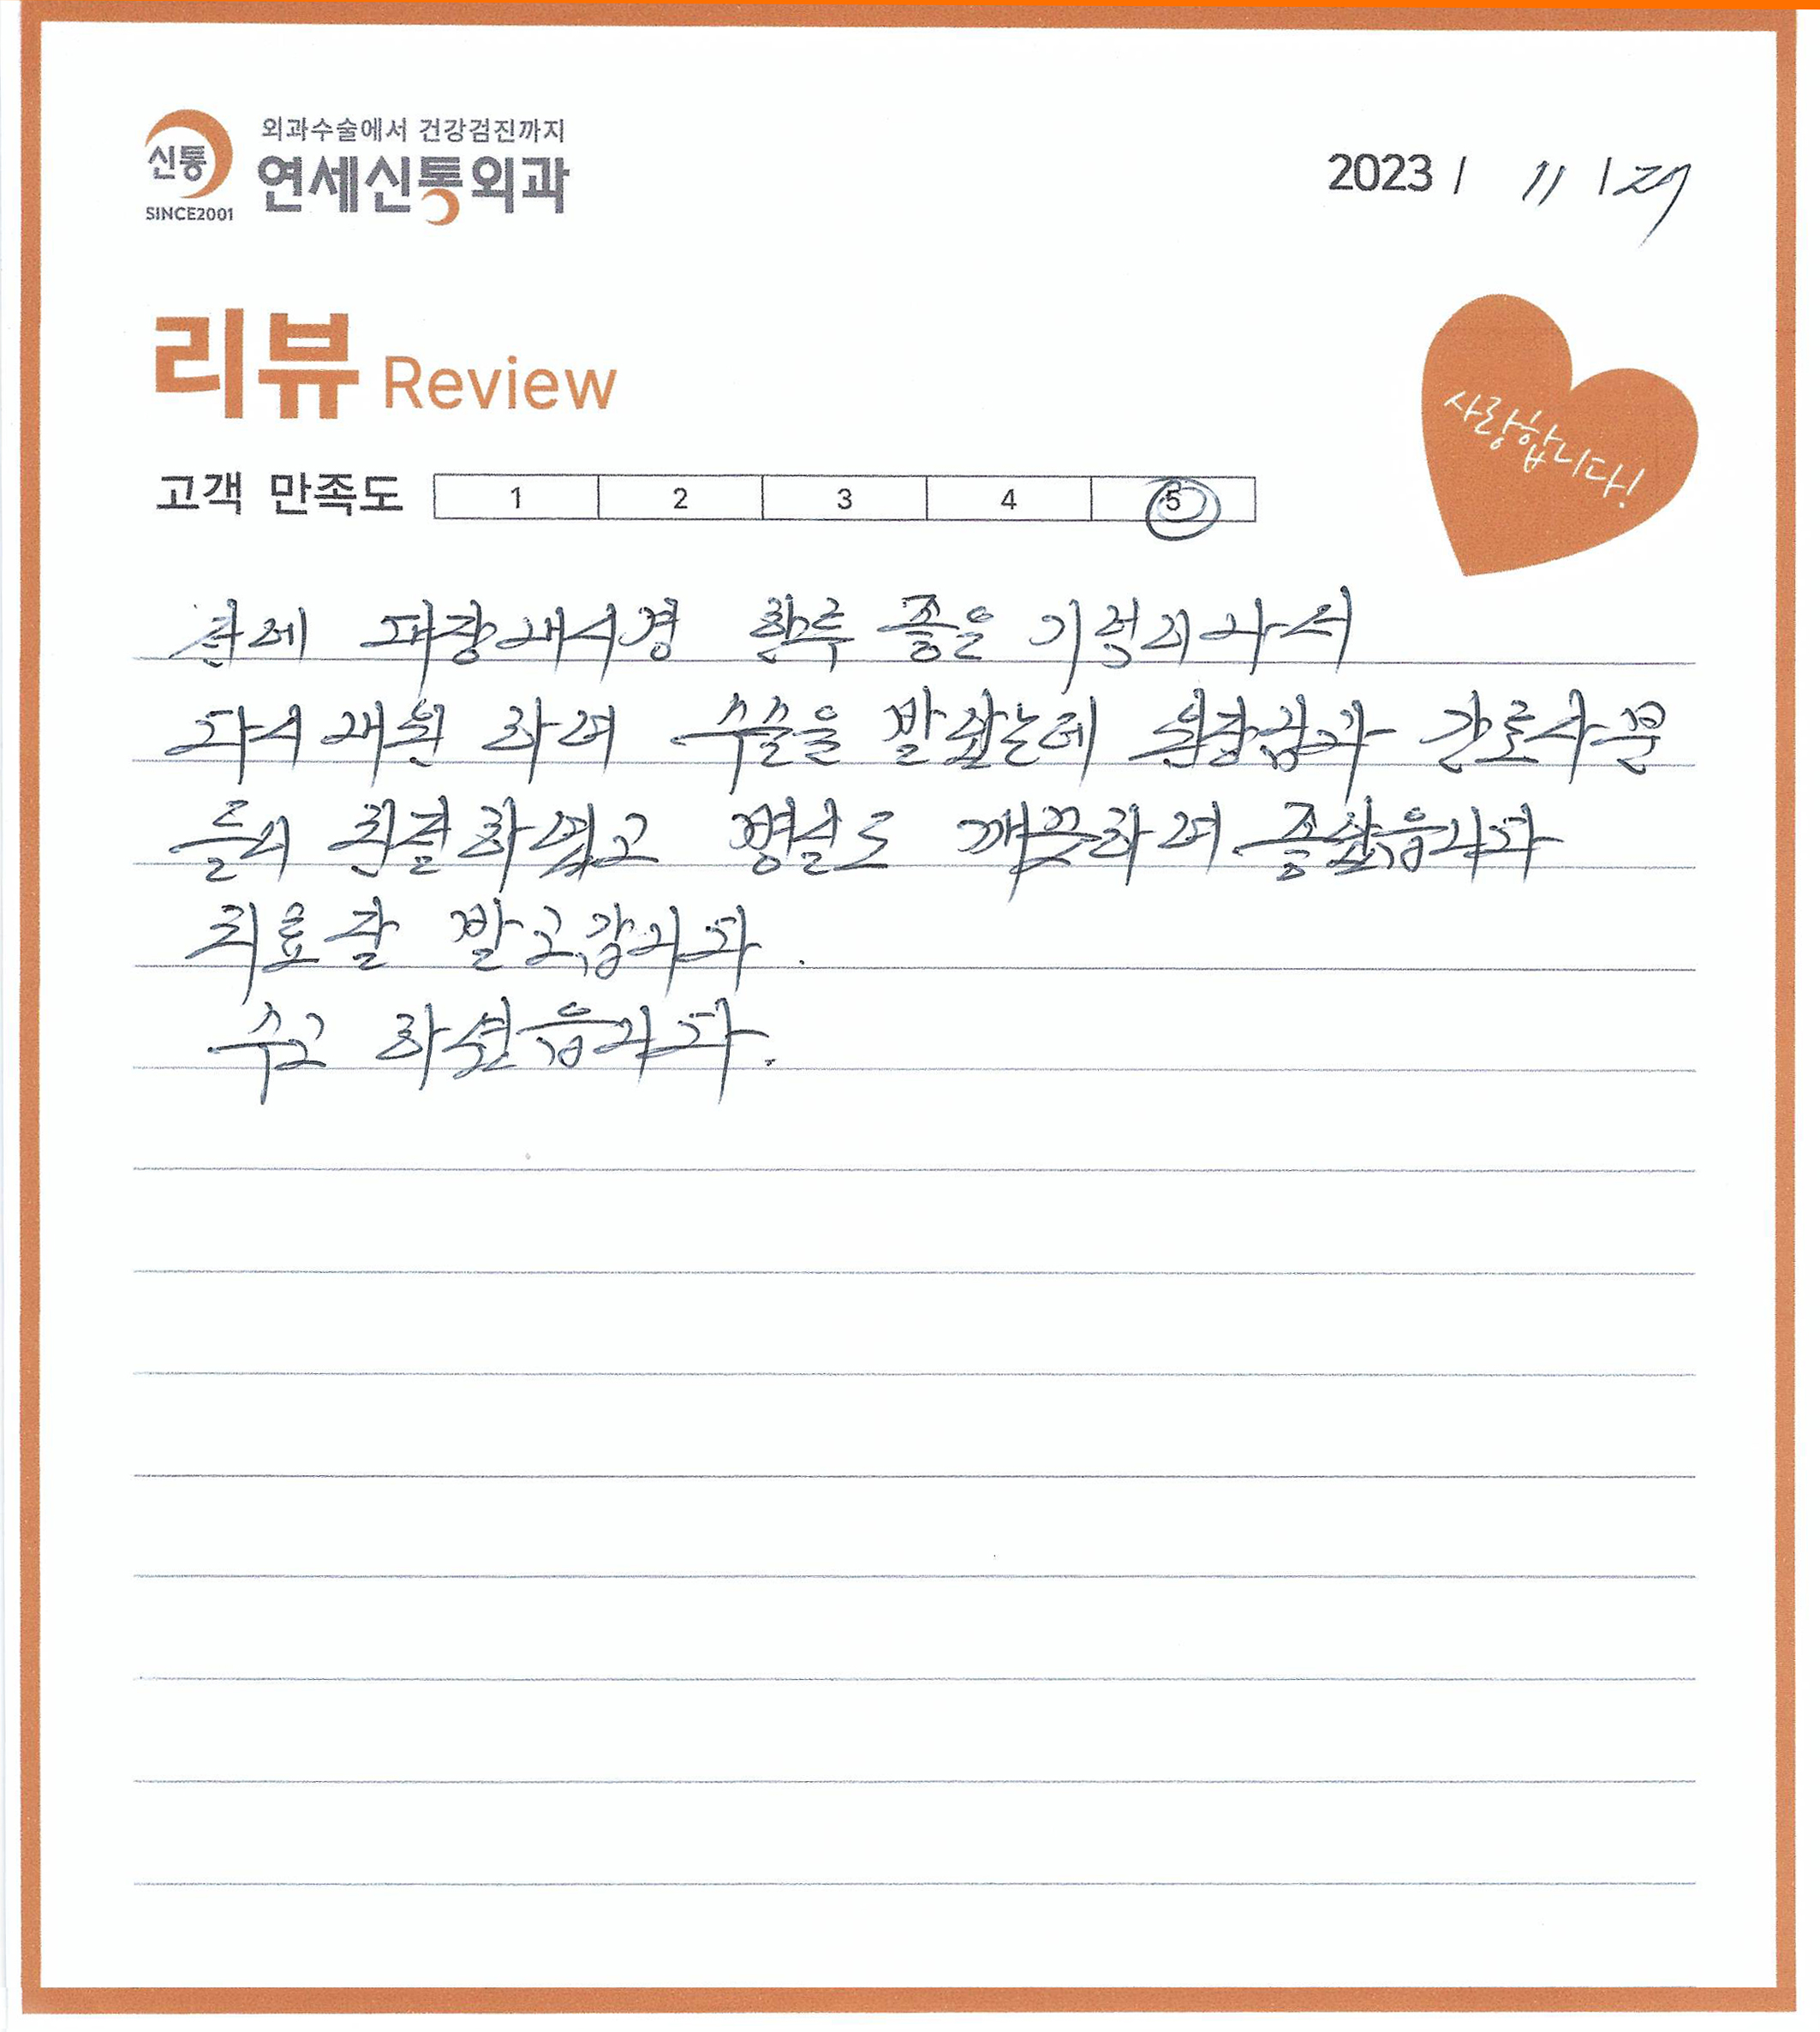 신통
SINCE2001
외과수술에서 건강검진까지
연세신통외과
2023 / 11 / 29
리뷰 Review
사랑합니다!
고객 만족도 1 2 3 4 5
대장내시경 좋은 기억이나서
다시 내원 하여 수술을 받았는데 원장님과 간호사분
들이 친절하였고 병실도 깨끗하여 좋았읍니다
치료 잘 받고 갑니다.
수고 하셨읍니다.